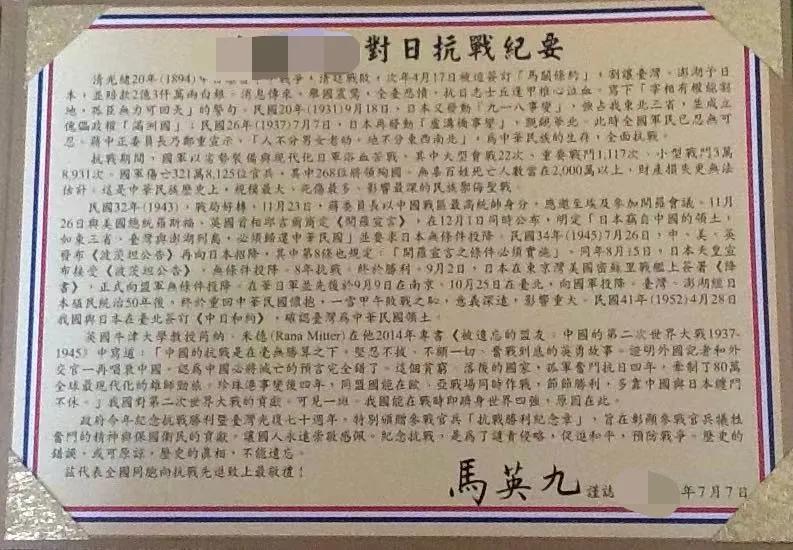 對日抗戰紀要
清光緒20年(1894)年 戰爭，清廷戰敗，次年4月17日被迫簽訂「馬關條約」，割讓臺灣、澎湖予日
本，並賠款2億3仟萬兩白銀。消息傳來，舉國震驚，全臺悲憤，抗日志士丘逢甲椎心泣血，寫下「宰相有權能割
地，孤臣無力可回天」的警句。民國20年(1931)9月18日，日本又發動「九一八事變」，強占我東北三省，並成立
傀儡政權「滿洲國」；民國26年(1937)7月7日，日本再發動「盧溝橋事變」，覬覦華北。此時全國軍民已忍無可
忍。蔣中正委員長乃鄭重宣示，「人不分男女老幼，地不分東西南北」，為中華民族的生存，全面抗戰。
抗戰期間，國軍以劣勢裝備與現代化日軍浴血苦戰，其中大型會戰22次、重要戰鬥1,117次、小型戰鬥3萬
8,931次。國軍傷亡321萬8,125位官兵，其中268位將領殉國。無辜百姓死亡人數當在2,000萬以上，財產損失更無法
估計。這是中華民族歷史上，規模最大、死傷最多、影響最深的民族禦侮聖戰。
民國32年(1943)，戰局好轉，11月23日，蔣委員長以中國戰區最高統帥身分，應邀至埃及參加開羅會議。11月
26日與美國總統羅斯福、英國首相邱吉爾商定《開羅宣言》，在12月1日同時公布，明定「日本竊自中國的領土，
如東三省、臺灣與澎湖列島，必須歸還中華民國」並要求日本無條件投降。民國34年(1945)7月26日，中、美、英
發布《波茨坦公告》再向日本招降，其中第8條也規定：「開羅宣言之條件必須實施」。同年8月15日，日本天皇宣
布接受《波茨坦公告》，無條件投降。8年抗戰，終於勝利。9月2日，日本在東京灣美國密蘇里戰艦上簽署《降
書》，正式向盟軍無條件投降。在華日軍並先後於9月9日在南京、10月25日在臺北，向國軍投降。臺灣、澎湖經日
本殖民統治50年後，終於重回中華民國懷抱，一雪甲午敗戰之恥，意義深遠，影響重大。民國41年(1952)4月28日
我國與日本在臺北簽訂《中日和約》，確認臺灣為中華民國領土。
英國牛津大學教授芮納．米德(Rana Mitter)在他2014年專書《被遺忘的盟友：中國的第二次世界大戰1937-
1945》中寫道：「中國的抗戰是在毫無勝算之下，堅忍不拔、不顧一切、奮戰到底的英勇故事。證明外國記者和外
交官一再唱衰中國，認為中國必將滅亡的預言完全錯了。這個貧窮、落後的國家，孤軍奮鬥抗日四年，牽制了80萬
全球最現代化的雄師勁旅。珍珠港事變後四年，同盟國能在歐、亞戰場同時作戰，節節勝利，多靠中國與日本纏鬥
不休。」我國對第二次世界大戰的貢獻，可見一班。我國能在戰時即躋身世界四強，原因在此。
政府今年紀念抗戰勝利暨臺灣光復七十週年，特別頒贈參戰官兵「抗戰勝利紀念章」，旨在彰顯參戰官兵犧牲
奮鬥的精神與保國衛民的貢獻，讓國人永遠崇敬感佩。紀念抗戰，是為了譴責侵略，促進和平，預防戰爭。歷史的
錯誤，或可原諒，歷史的真相，不能遺忘。
茲代表全國同胞向抗戰先進致上最敬禮！
馬英九 謹誌 年7月7日